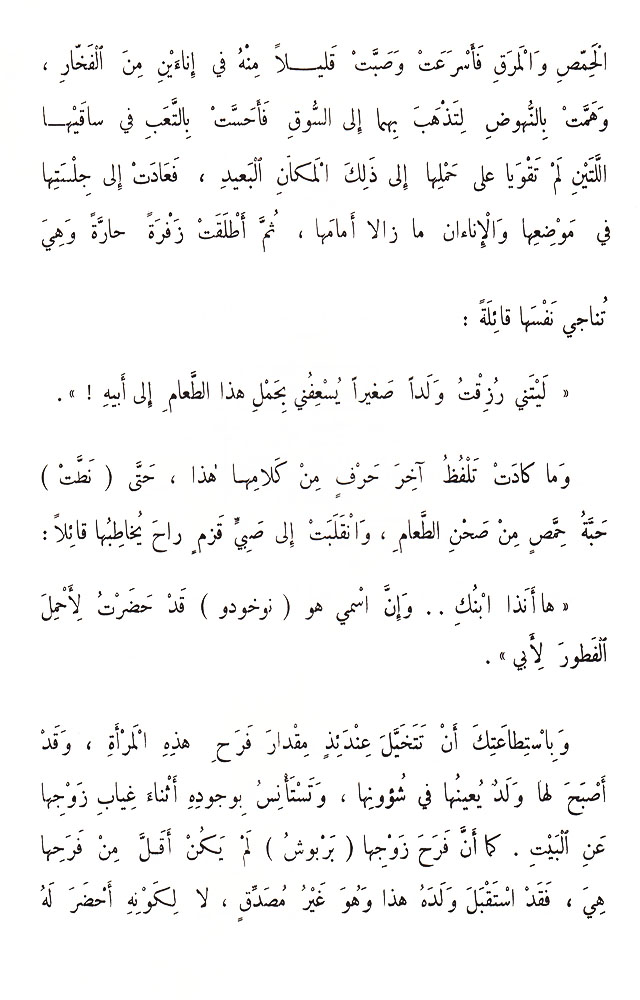 الْحَمِّصِ وَالْمَرَقِ فَأَسْرَعَتْ وَصَبَّتْ قَليـــلاً مِنْهُ في إِناءَيْنِ مِنَ ٱلْفَخّارِ ،
وَهَمَّتْ بِالنُّهوضِ لِتَذْهَبَ بِهِما إِلى السُّوقِ فَأَحَسَّتْ بِالتَّعَبِ في ساقَيْهــا
اللَّتَيْنِ لَمْ تَقْوَيا على حَمْلِها إِلى ذَلِكَ الْمَكانِ ٱلْبَعيدِ ، فَعَادَتْ إِلى جِلْسَتِها
في مَوْضِعِها وَالْإِناءان ما زالا أَمامَها ، ثُمَّ أَطْلَقَتْ زَفْرَةً حارَّةً وَهِيَ
تُناجي نَفْسَها قائِلَةً :
« لَيْتَني رُزِقْتُ وَلَداً صَغيراً يُسْعِفُني بِحَمْلِ هذا الطَّعام ِ إِلى أَبيهِ ! » .
وَما كادَتْ تَلْفُظُ آخِرَ حَرْفٍ مِنْ كَلامِهـا هٰذا ، حَتَّى ( نَطَّتْ )
حَبَّةُ حِمَّصٍ مِنْ صَحْنِ الطَّعام ِ ، وَانْقَلَبَتْ إِلى صَبِيٍّ قَزم ٍ راحَ يُخاطِبُها قائِلاً :
« ها أَنَذا ابْنُكِ .. وَإِنَّ اسْمي هو ( نوخودو ) قَدْ حَضَرْتُ لِأَحْمِلَ
ٱلْفَطورَ لِأَبي » .
وَبِاسْتِطاعَتِكَ أَنْ تَتَخَيَّلَ عِنْدَئِذٍ مِقْدارَ فَرَح ِ هذِهِ الْمَرْأَةِ ، وَقَدْ
أَصْبَحَ لَها وَلَدٌ يُعينُها في شُؤونِها ، وَتَسْتَأْنِسُ بِوجودِهِ أَثْناءَ غِيابِ زَوْجِها
عَنِ ٱلْبَيْتِ . كَما أَنَّ فَرَحَ زَوْجِها ( بَرْبوشُ ) لَمْ يَكُنْ أَقَـلَّ مِنْ فَرَحِها
هِيَ ، فَقَدْ اسْتَقْبَلَ وَلَدَهُ هذا وَهُوَ غَيْرُ مُصَدِّقٍ ، لا لِكَوْنِهِ أَحْضَرَ لَهُ